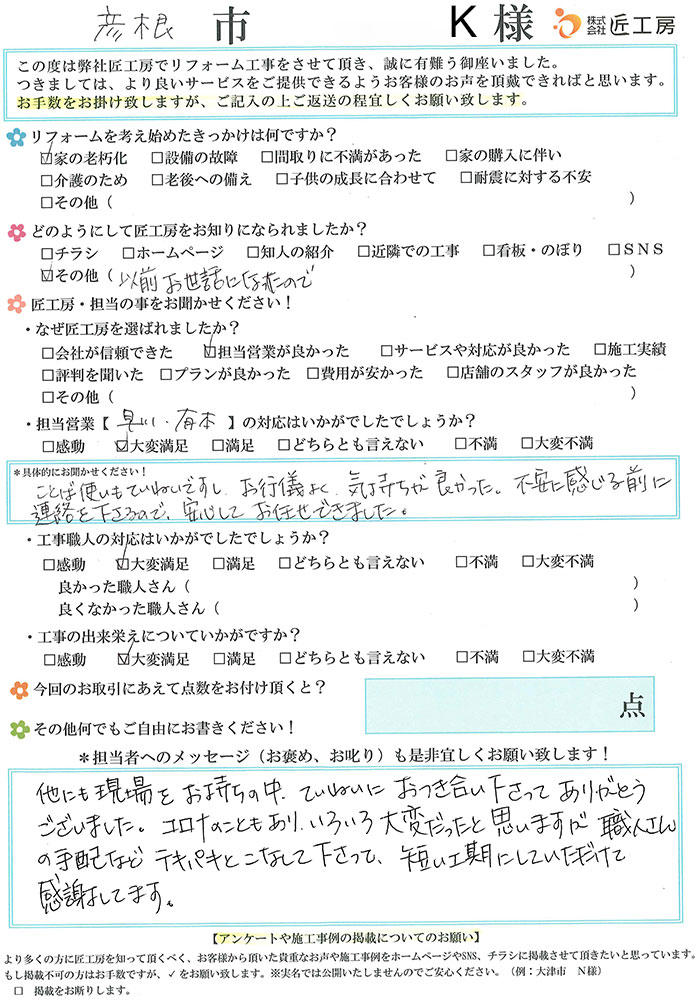 彦根 市 K 様 株式会社 匠工房
この度は弊社匠工房でリフォーム工事をさせて頂き、誠に有難う御座いました。
つきましては、より良いサービスをご提供できるようお客様のお声を頂戴できればと思います。
お手数をお掛け致しますが、ご記入の上ご返送の程宜しくお願い致します。
リフォームを考え始めたきっかけは何ですか？
☑家の老朽化 □設備の故障 □間取りに不満があった □家の購入に伴い
□介護のため □老後への備え □子供の成長に合わせて □耐震に対する不安
□その他（ ）
どのようにして匠工房をお知りになられましたか？
□チラシ □ホームページ □知人の紹介 □近隣での工事 □看板・のぼり □ＳＮＳ
☑その他（以前お世話になったので ）
匠工房・担当の事をお聞かせください！
・なぜ匠工房を選ばれましたか？
□会社が信頼できた ☑担当営業が良かった □サービスや対応が良かった □施工実績
□評判を聞いた □プランが良かった □費用が安かった □店舗のスタッフが良かった
□その他（ ）
・担当営業【 ・有本 】の対応はいかがでしたでしょうか？
□感動 ☑大変満足 □満足 □どちらとも言えない □不満 □大変不満
＊具体的にお聞かせください！
ことば使いもていねいですし、お行儀よく、気持ちが良かった。不安に感じる前に
連絡を下さるので、安心してお任せできました。
・工事職人の対応はいかがでしたでしょうか？
□感動 ☑大変満足 □満足 □どちらとも言えない □不満 □大変不満
良かった職人さん（ ）
良くなかった職人さん（ ）
・工事の出来栄えについていかがですか？
□感動 ☑大変満足 □満足 □どちらとも言えない □不満 □大変不満
今回のお取引にあえて点数をお付け頂くと？
点
その他何でもご自由にお書きください！
＊担当者へのメッセージ（お褒め、お叱り）も是非宜しくお願い致します！
他にも現場をお持ちの中、ていねいにおつき合い下さってありがとう
ございました。コロナのこともあり、いろいろ大変だったと思いますが職人さん
の手配などテキパキとこなして下さって、短い工期にしていただけて
感謝してます。
【アンケートや施工事例の掲載についてのお願い】
より多くの方に匠工房を知って頂くべく、お客様から頂いた貴重なお声や施工事例をホームページやSNS、チラシに掲載させて頂きたいと思っています。
もし掲載不可の方はお手数ですが、✓をお願い致します。※実名では公開いたしませんのでご安心ください。（例：大津市 Ｎ様）
□ 掲載をお断りします。